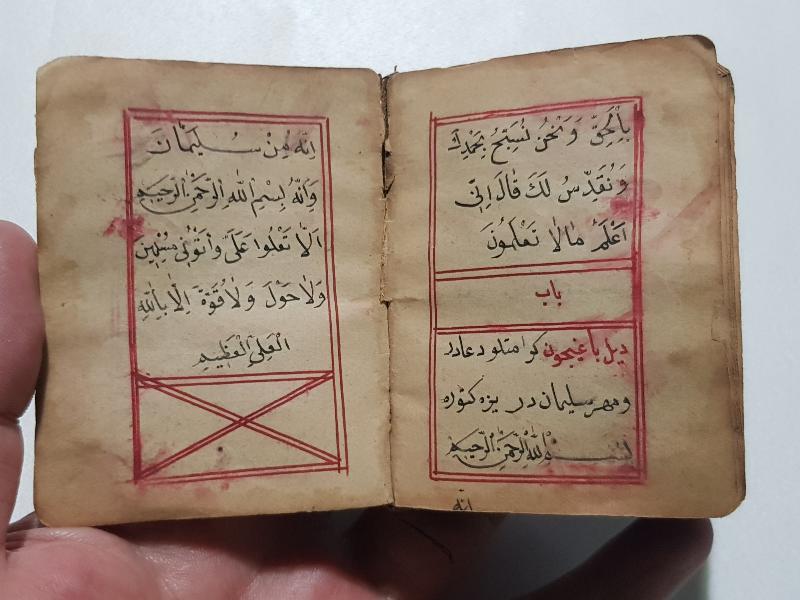 بِالْحَقِّ وَنَحْنُ نُسَبِّحُ بِحَمْدِكَ
وَنُقَدِّسُ لَكَ قَالَ اِنِّى
اَعْلَمُ مَالَا تَعْلَمُونَ
باب
ديل باغيچون كرامتلو دعادر
ومهر سليمان در يزه كتوره
بِسْمِ اللّٰهِ الرَّحْمٰنِ الرَّحِيمِ
انه
اِنَّهُ مِنْ سُلَيْمَانَ
وَاِنَّهُ بِسْمِ اللّٰهِ الرَّحْمٰنِ الرَّحِيمِ
اَلَّا تَعْلُوا عَلَىَّ وَأْتُونِى مُسْلِمِينَ
وَلَا حَوْلَ وَلَا قُوَّةَ اِلَّا بِاللّٰهِ
الْعَلِىِّ الْعَظِيمِ